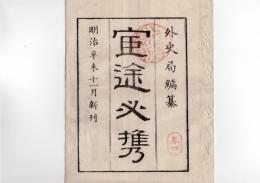 外史局編纂
官途必携
明治辛未十一月新刊
巻四